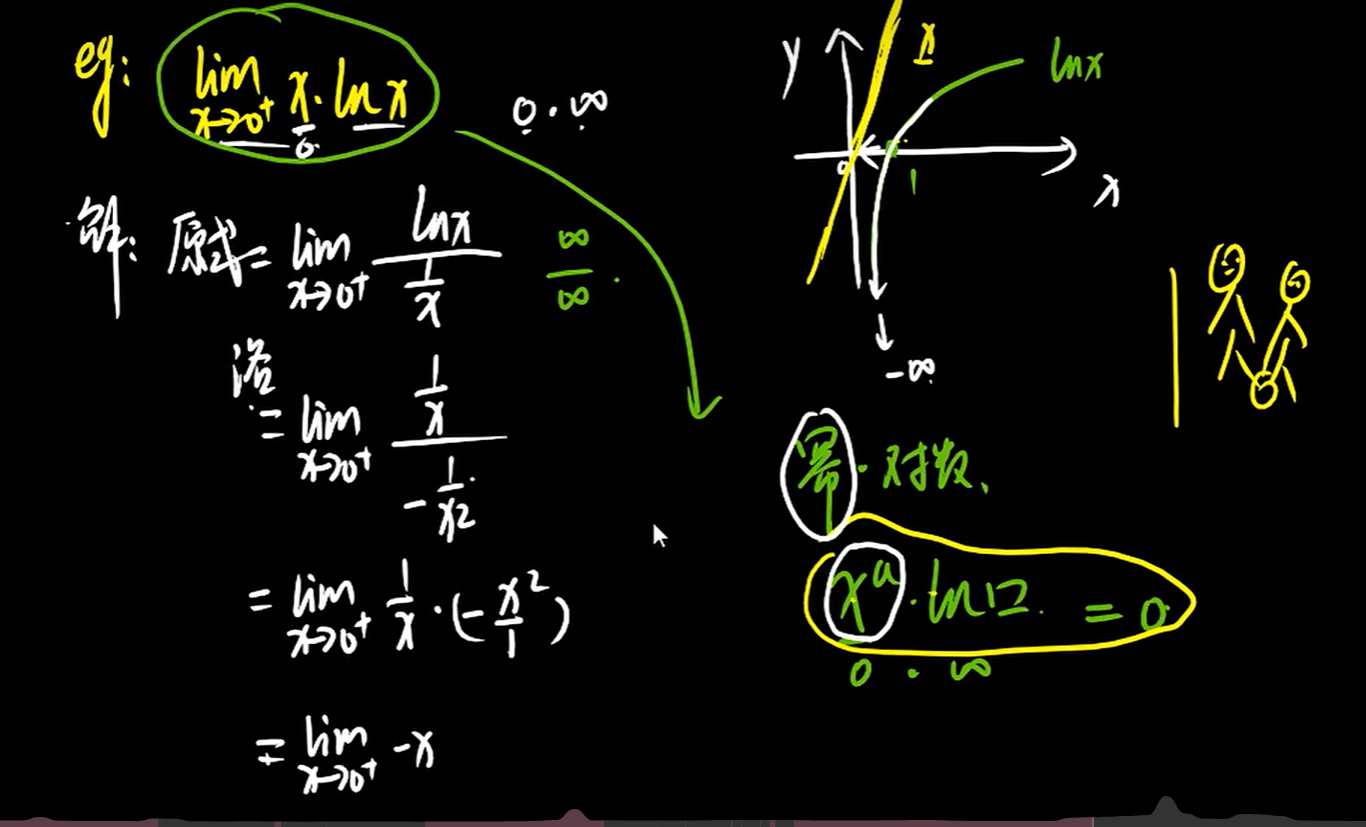 eg: lim x→0⁺ x·ln x
0
0·∞
解: 原式 = lim x→0⁺ lnx / (1/x)
∞/∞
洛
= lim x→0⁺ (1/x) / (-1/x²)
= lim x→0⁺ 1/x · (-x²/1)
= lim x→0⁺ -x
y
x
lnx
0
1
x
-∞
幂·对数、
xᵅ·ln口. = 0
0·∞